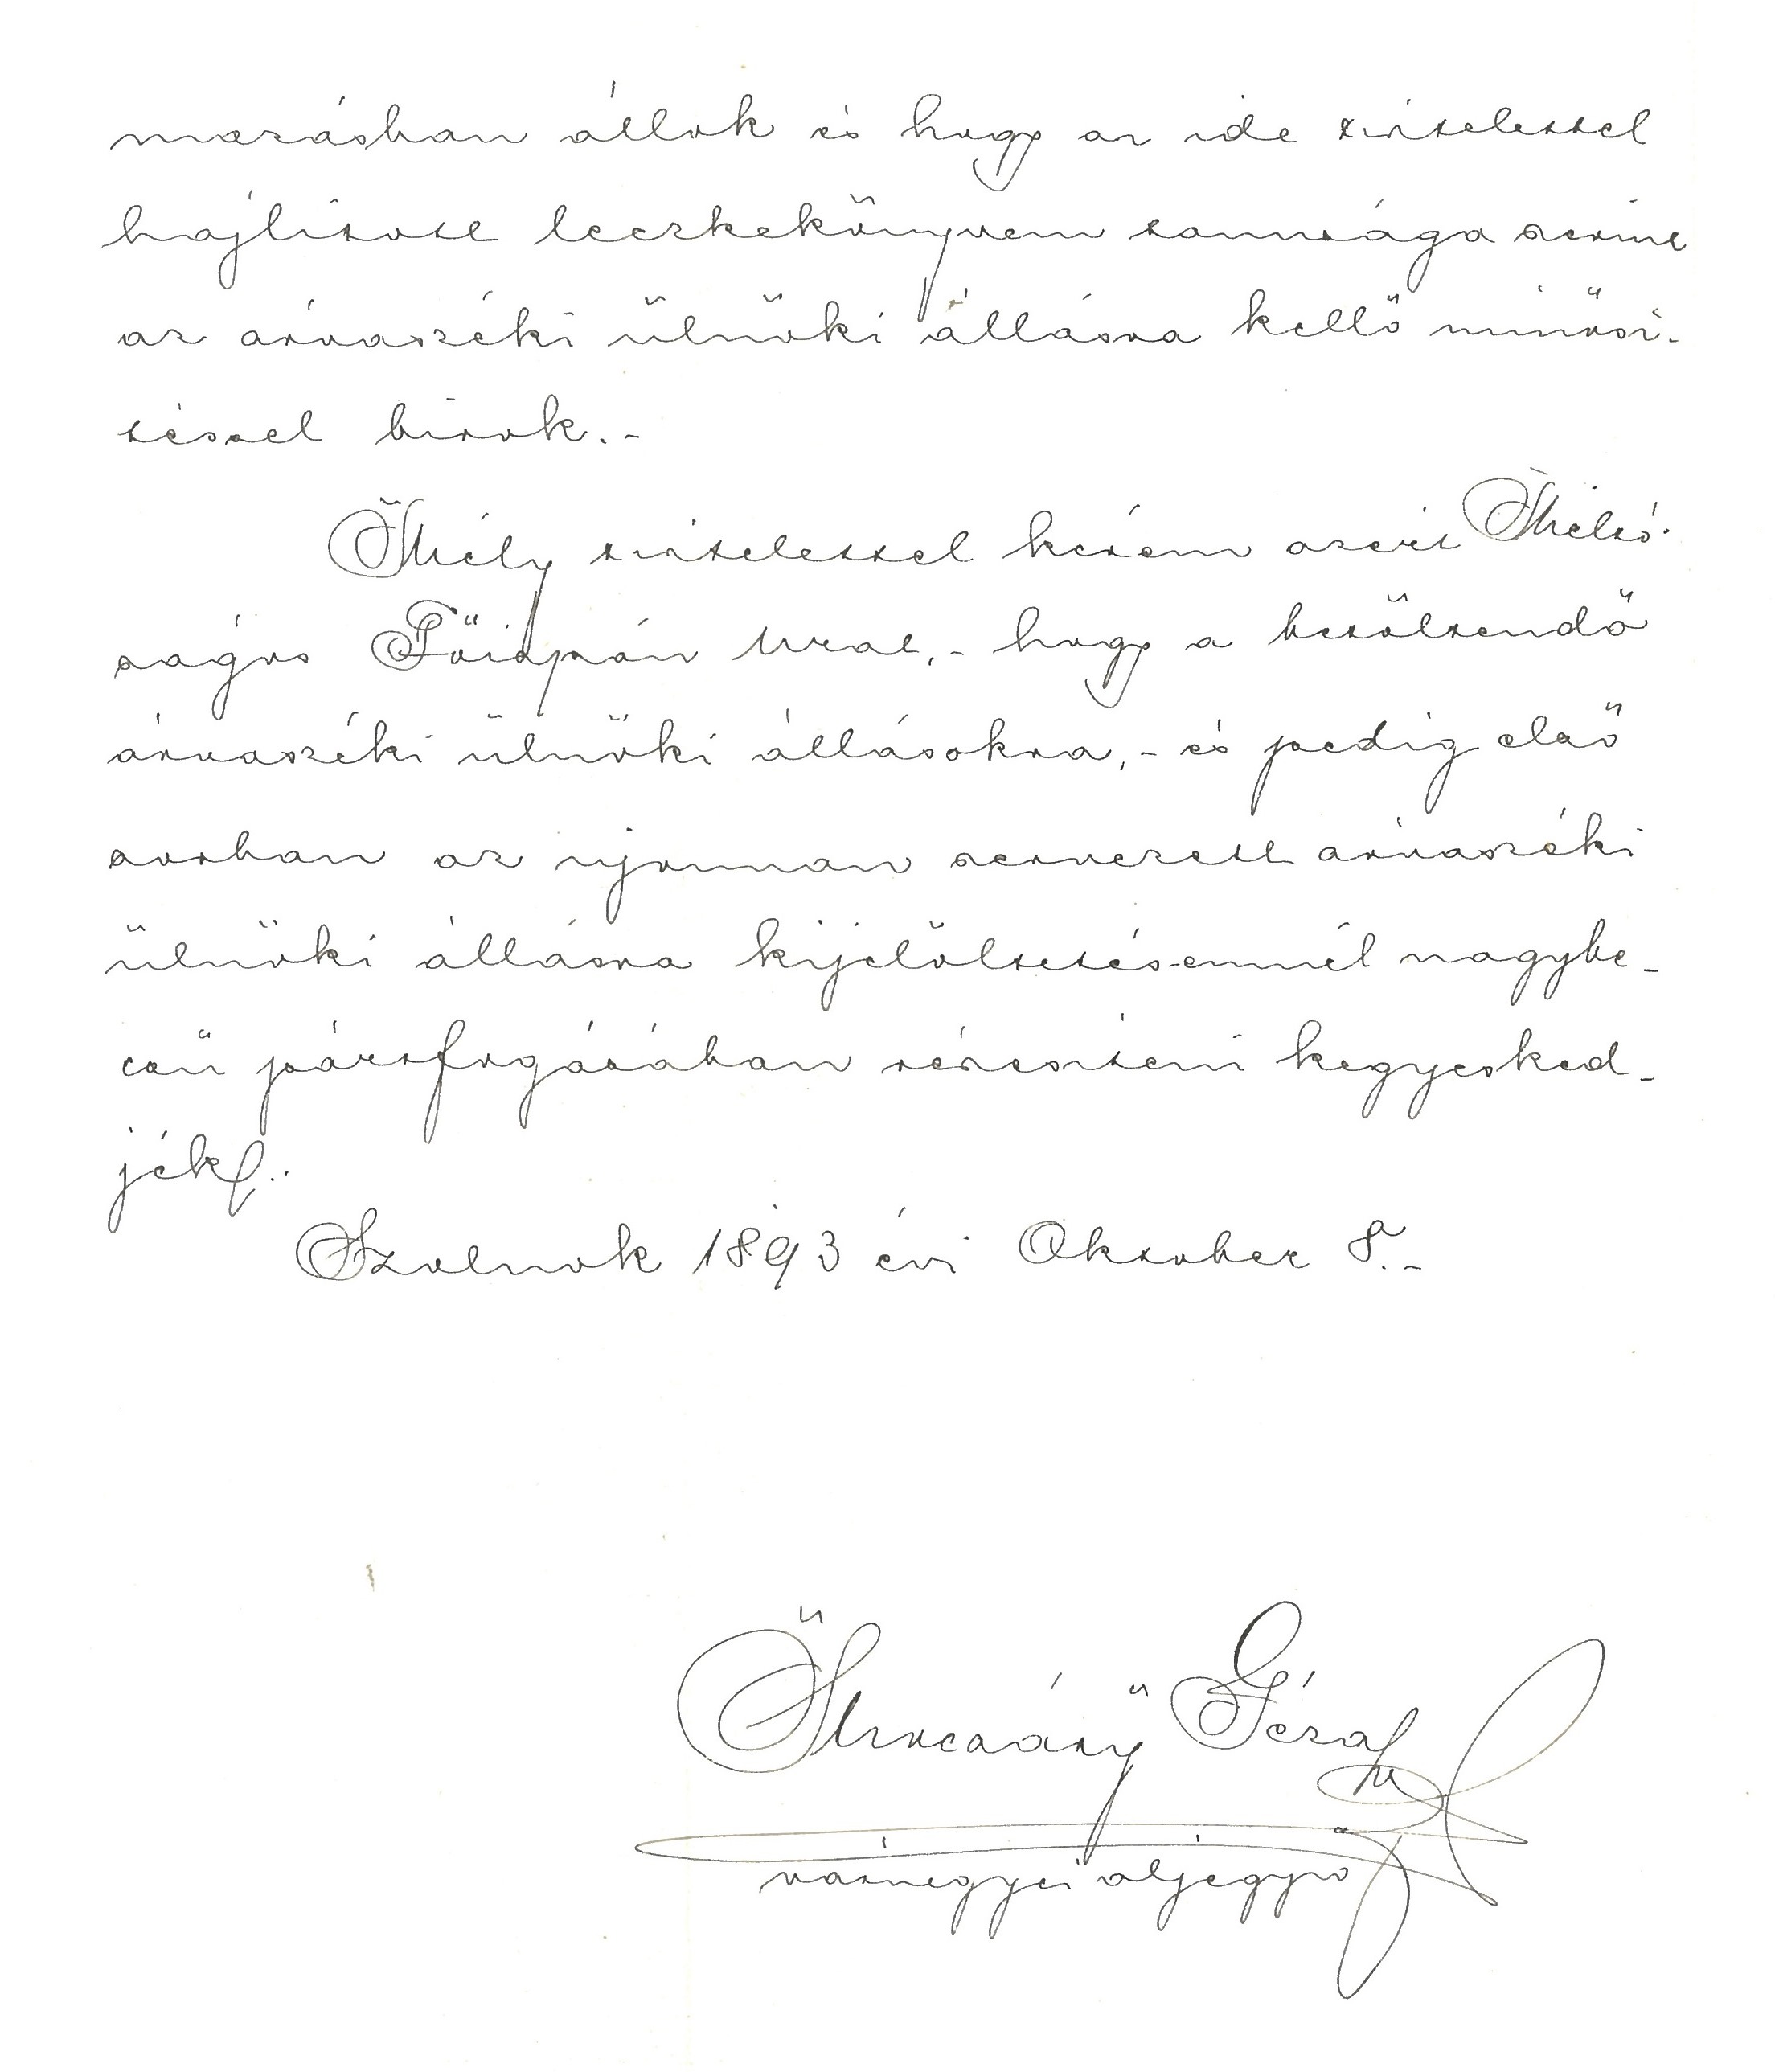 mazásban állok és hogy az ide tisztelettel
hajlitott leczkekönyvem tanusága szerint
az árvaszéki ülnöki állásra kellő minősi-
téssel birok.-
Mély tisztelettel kérem azért Méltó-
ságos Főispán Urat,- hogy a betöltendő
árvaszéki ülnöki állásokra,- és pedig első
sorban az ujonnan szervezett árvaszéki
ülnöki állásra kijelöltetésemnél nagybe-
csü pártfogásában részesiteni kegyesked-
jék.
Szolnok 1893 évi Oktober 8.-
Géza
vármegyei aljegyző